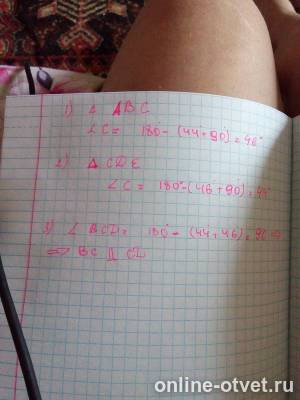 1) Δ ABC
∠C = 180° - (44+90) = 46°
2) Δ CDE
∠C = 180° - (46+90) = 44°
3) ∠ BCD = 180 - (44+46) = 90 =>
=> BC ⊥ CD
online-otvet.ru